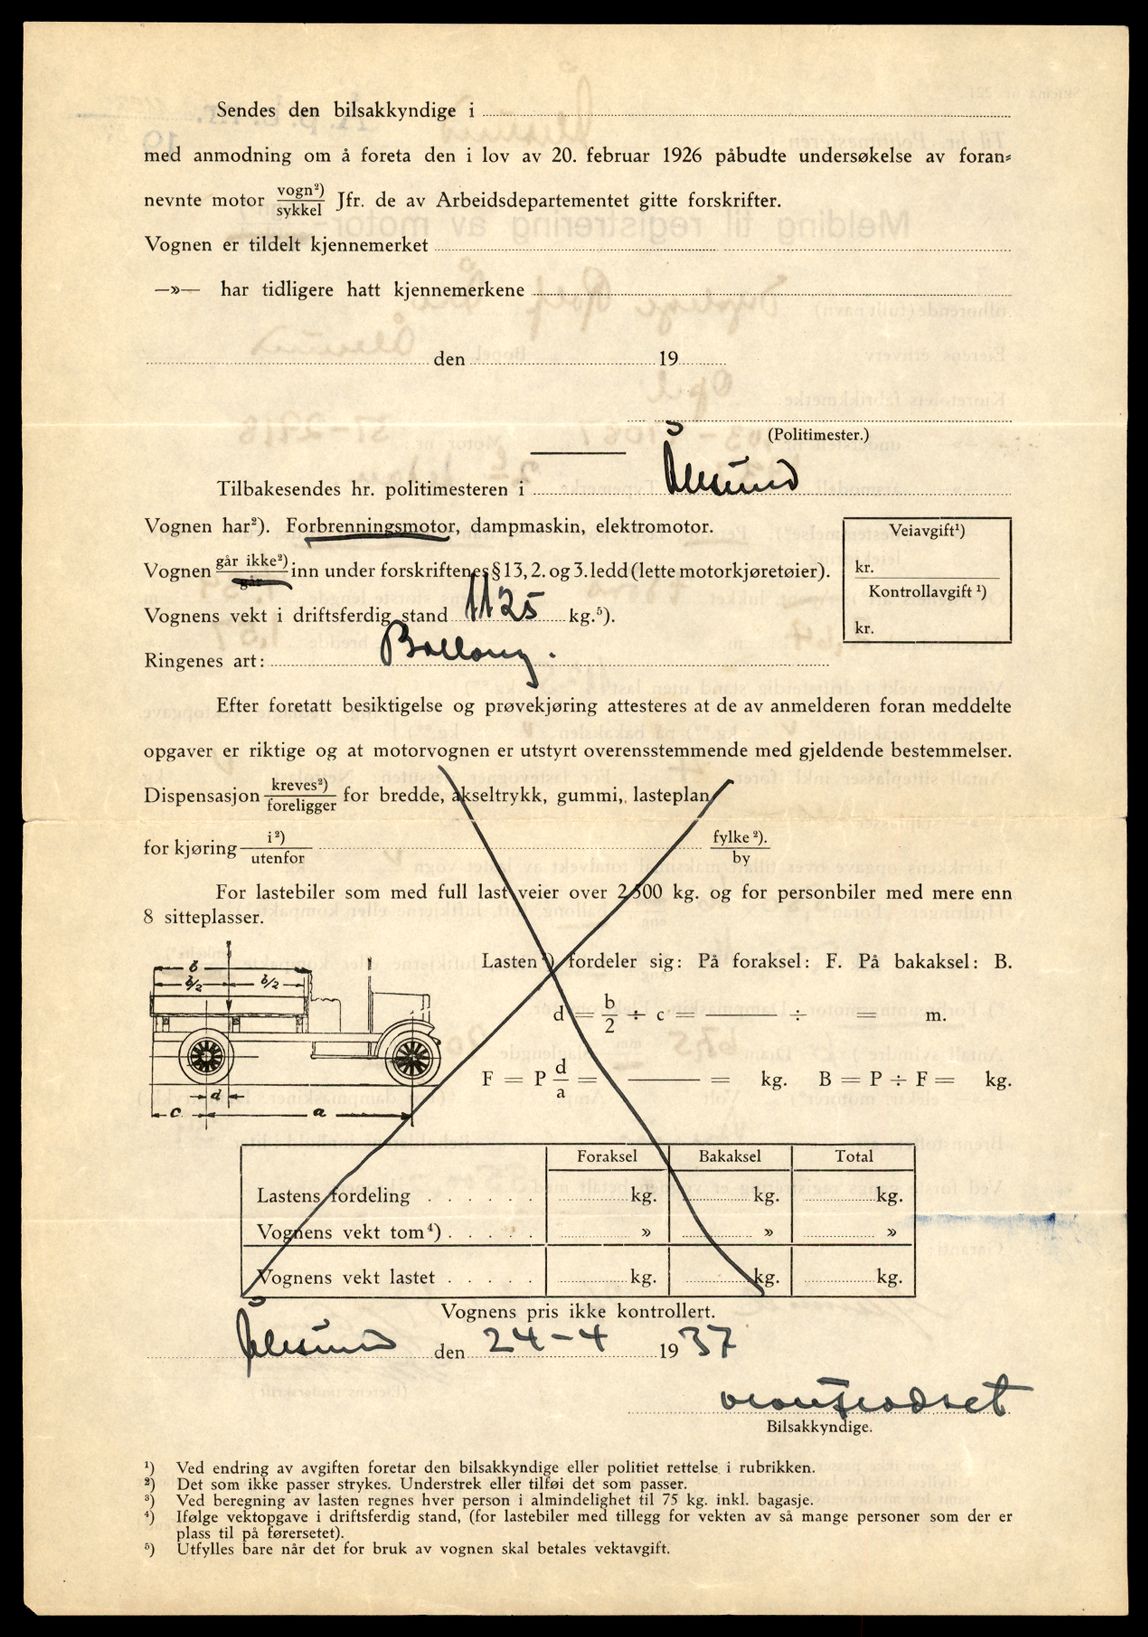 Sendes den bilsakkyndige i
med anmodning om å foreta den i lov av 20. februar 1926 påbudte undersøkelse av foran=
nevnte motor vogn²) / sykkel Jfr. de av Arbeidsdepartementet gitte forskrifter.
Vognen er tildelt kjennemerket
—»— har tidligere hatt kjennemerkene
den 19
(Politimester.)
Tilbakesendes hr. politimesteren i Ålesund
Vognen har²). Forbrenningsmotor, dampmaskin, elektromotor.
Veiavgift¹)
kr.
Kontrollavgift ¹)
kr.
Vognen går ikke²) / går inn under forskriftenes § 13, 2. og 3. ledd (lette motorkjøretøier).
Vognens vekt i driftsferdig stand 1125 kg.⁵).
Ringenes art: Ballong.
Efter foretatt besiktigelse og prøvekjøring attesteres at de av anmelderen foran meddelte
opgaver er riktige og at motorvognen er utstyrt overensstemmende med gjeldende bestemmelser.
Dispensasjon kreves²) / foreligger for bredde, akseltrykk, gummi, lasteplan
for kjøring i²) / utenfor fylke²). / by
For lastebiler som med full last veier over 2500 kg. og for personbiler med mere enn
8 sitteplasser.
Lasten³) fordeler sig: På foraksel: F. På bakaksel: B.
b
b/2 b/2
d = b/2 ÷ c = ——— ÷ = m.
F = P d/a = ——— = kg. B = P ÷ F = kg.
d
c a
Foraksel Bakaksel Total
Lastens fordeling . . . . . . kg. kg. kg.
Vognens vekt tom⁴) . . . . . » » »
Vognens vekt lastet . . . . . kg. kg. kg.
Vognens pris ikke kontrollert.
Ålesund den 24-4 1937
Bilsakkyndige.
¹) Ved endring av avgiften foretar den bilsakkyndige eller politiet rettelse i rubrikken.
²) Det som ikke passer strykes. Understrek eller tilføi det som passer.
³) Ved beregning av lasten regnes hver person i almindelighet til 75 kg. inkl. bagasje.
⁴) Ifølge vektopgave i driftsferdig stand, (for lastebiler med tillegg for vekten av så mange personer som der er
plass til på førersetet).
⁵) Utfylles bare når det for bruk av vognen skal betales vektavgift.